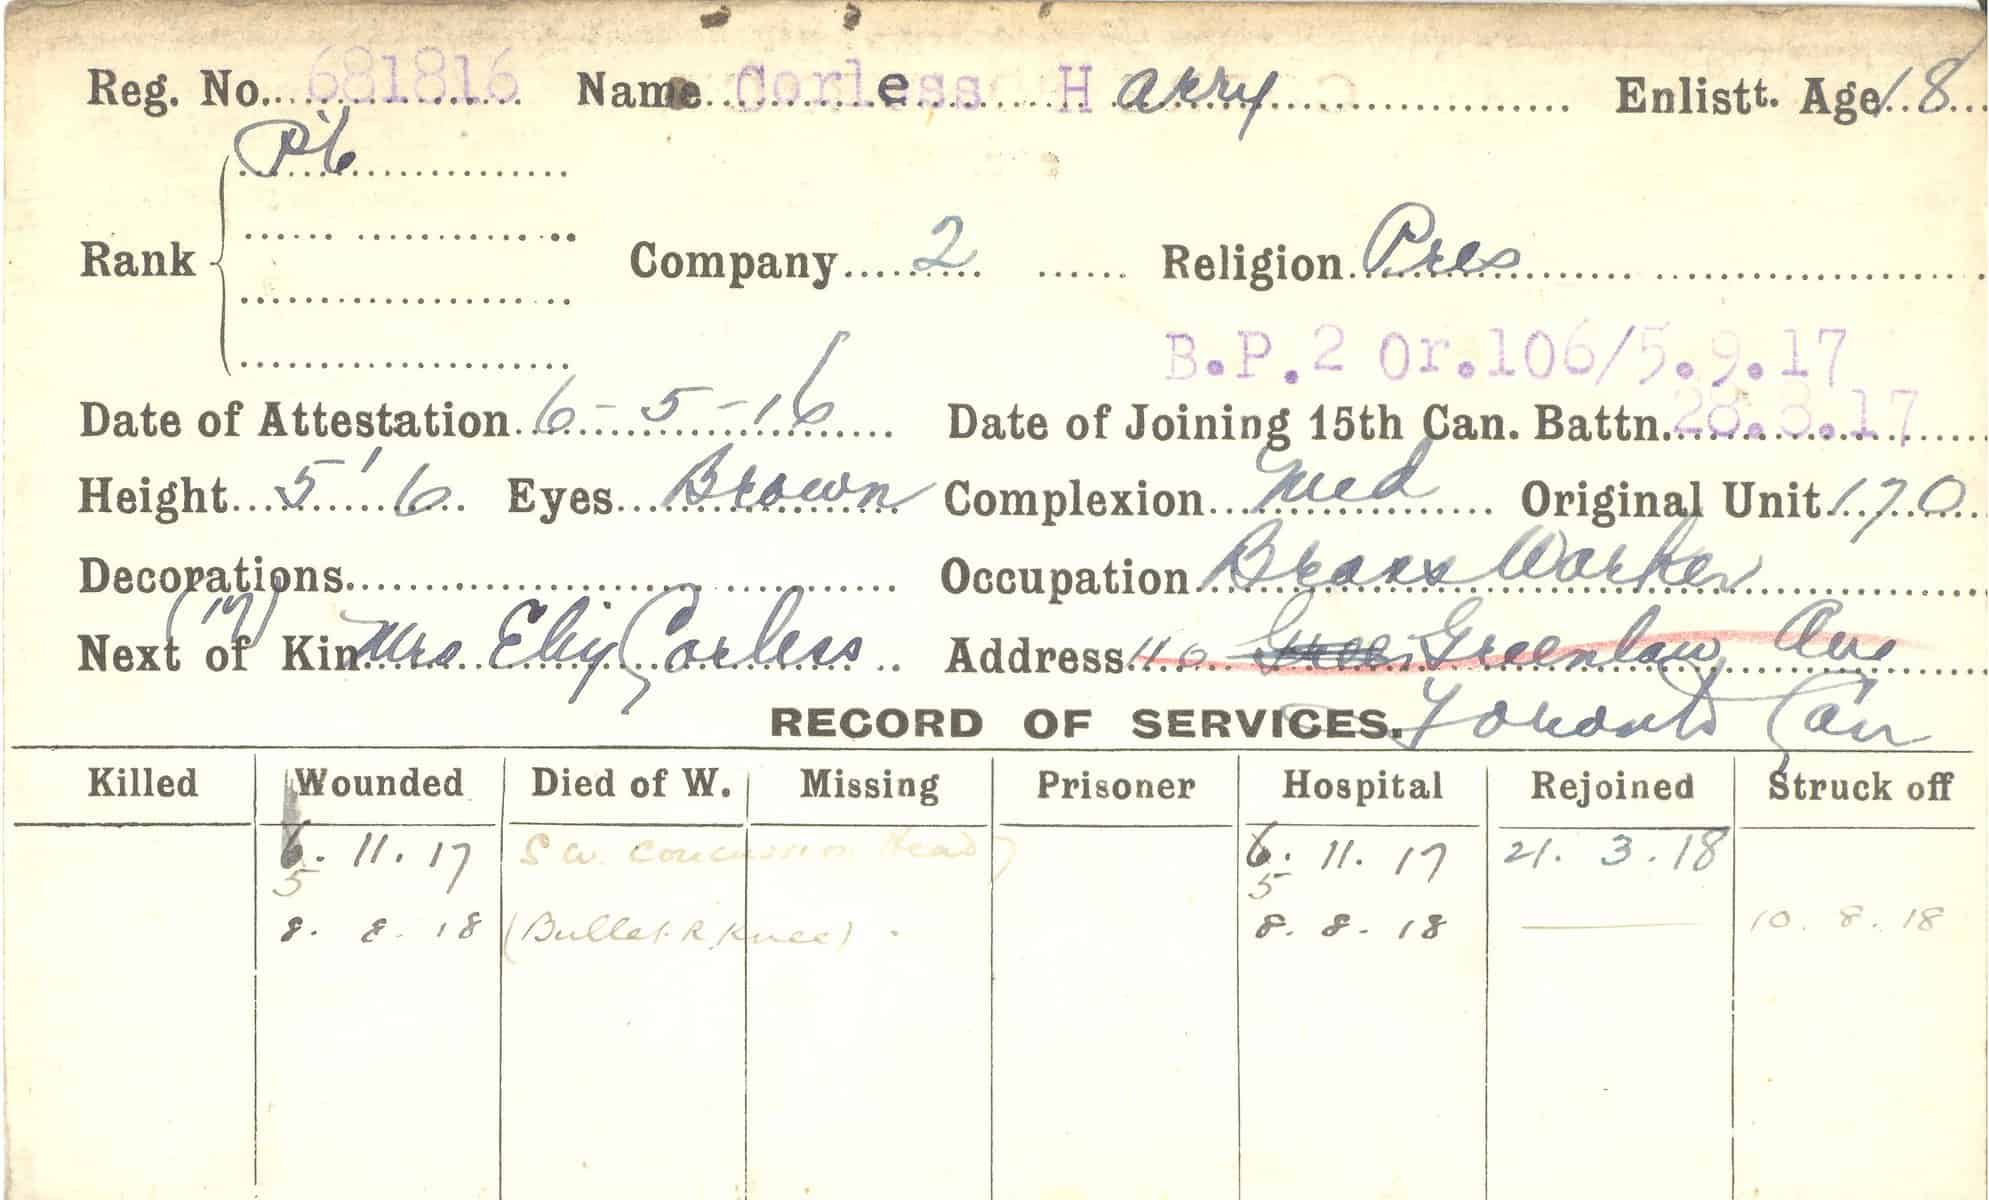 Reg. No. 681816 Name Corless Harry Enlistt. Age 18
Pte
Rank Company 2 Religion Pres
B.P.2 Or.106/5.9.17
Date of Attestation 6-5-16 Date of Joining 15th Can. Battn. 28.8.17
Height 5'6 Eyes Brown Complexion Med Original Unit 170
Decorations Occupation Brass Worker
(m)
Next of Kin Mrs Eliz Corless Address 116 Greenlaw Ave
RECORD OF SERVICES. Toronto Can
Killed Wounded Died of W. Missing Prisoner Hospital Rejoined Struck off
6. 11. 17 S W. Concussion Head) 6. 11. 17 21. 3. 18
5 5
8. 8. 18 (Bullet R Knee) 8. 8. 18 — 10. 8. 18